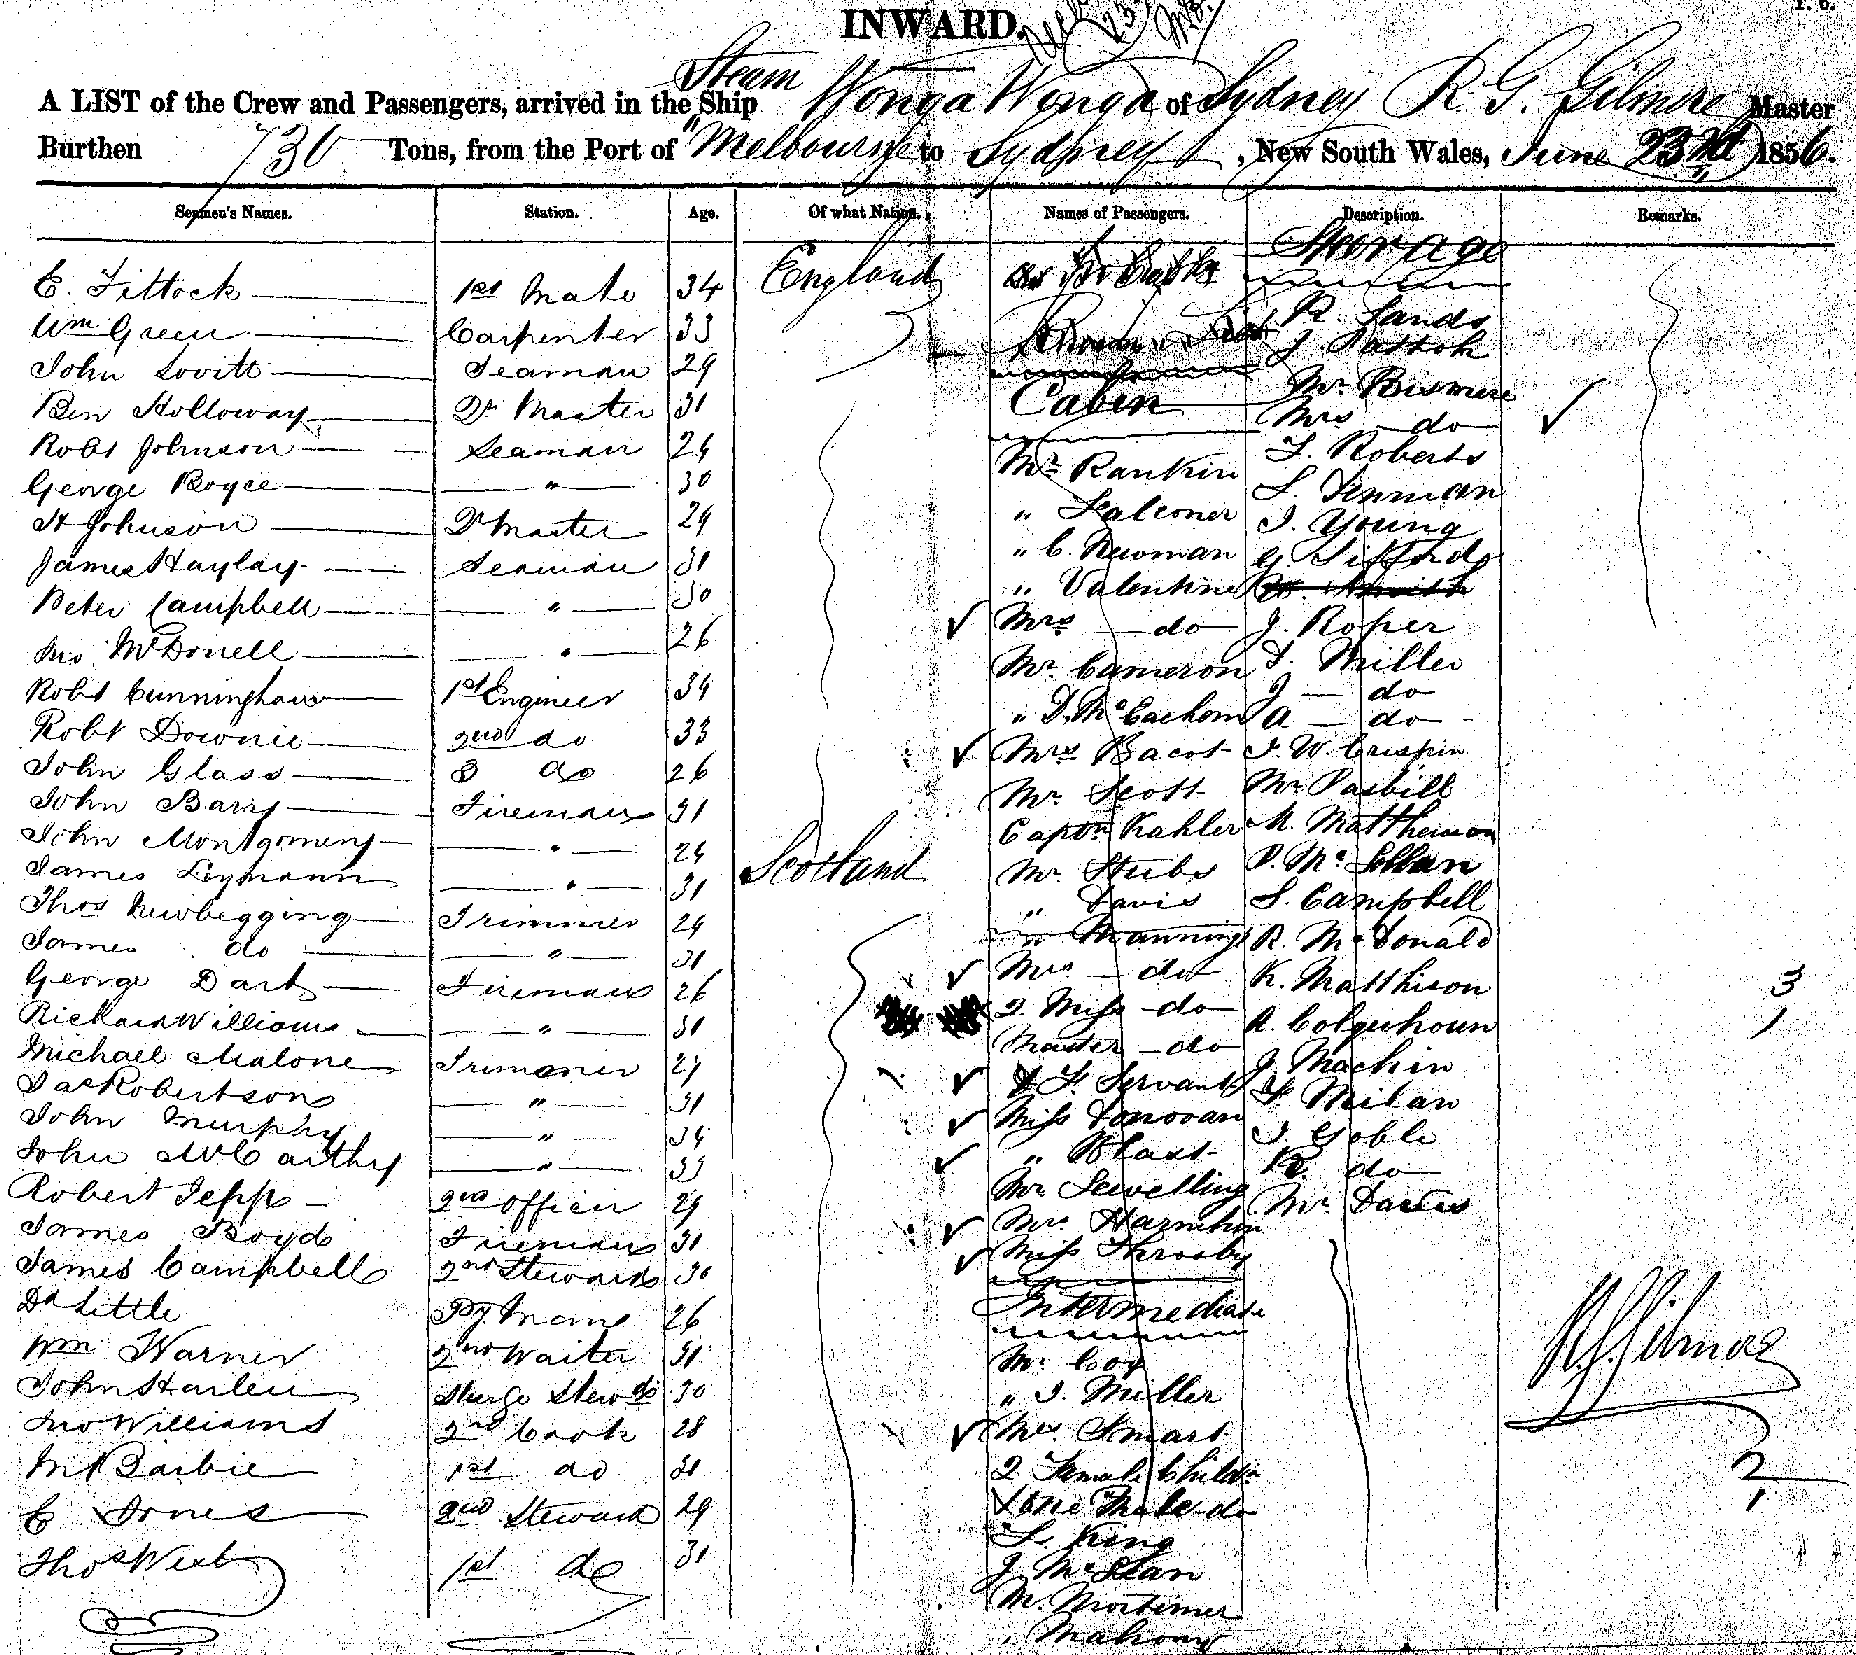 INWARD.
A LIST of the Crew and Passengers, arrived in the Steam Ship Wonga Wonga of Sydney R. G. Gilmore Master
Burthen 730 Tons, from the Port of Melbourne to Sydney, New South Wales, June 23rd 1856.
Seamen's Names. Station. Age. Of what Nation. Names of Passengers. Description. Remarks.
E. Tittock 1st Mate 34 England
Wm Green Carpenter 33
John Lovitt Seaman 29
Ben Holloway Qr Master 31
Robt Johnson Seaman 24
George Royce " 30
H Johnson Qr Master 29
James Haylay Seaman 31
Peter Campbell " 30
Jno McDonell " 26
Robt Cunningham 1st Engineer 34
Robt Downie 2nd do 33
John Glass 3 do 26
John Barry Fireman 31
John Montgomery " 24
James Lymann " 31 Scotland
Thos Newbegging Trimmer 24
James do " 31
George Dart Fireman 26
Richard Williams " 31
Michael Malone Trimmer 29
Jas Robertson " 31
John Murphy " 34
John McCarthy " 33
Robert Jepp 2nd Officer 29
James Boyd Fireman 31
James Campbell 2nd Steward 30
Dd Little Py man 26
Wm Warner 2nd Waiter 31
John Harleu Sterge Stewd 30
Jno Williams 2nd Cook 28
M Barbie 1st do 31
E Jones 2nd Steward 29
Thos West 1st do 31
Cabin
Mr Rankin
" Falconer
" C. Newman
" Valentine
Mrs do
Mr Cameron
" D. McEachern
Mrs Bacot
Mr Scott
Captn Kahler
Mr Stubs
" Davis
" Manning
Mrs do
2 Miss do
Master do
F. Servant
Miss Donovan
" Blast
Mr Lewelling
Mrs Harnihan
Miss Throsby
Intermediate
Mr Coy
" J. Miller
Mrs Smart
2 Female Childn
One Male do
L. King
J. McLean
M. Mortimer
" Mahony
Steerage
R. Sands
J. Pattoh
Mr Bismere
Mrs do
F. Roberts
L. Inman
J. Young
G. Giffords
J. Roper
J. Miller
J do
A do
J. W. Crispin
Mr Pasbill
M. Mattheison
D. McLellan
S. Campbell
R. McDonald
K. Matthison
A. Colquhoun
J. Machin
F. Milan
J. Goble
R. do
Mr Davis
3
1
R. G. Gilmore
2
1